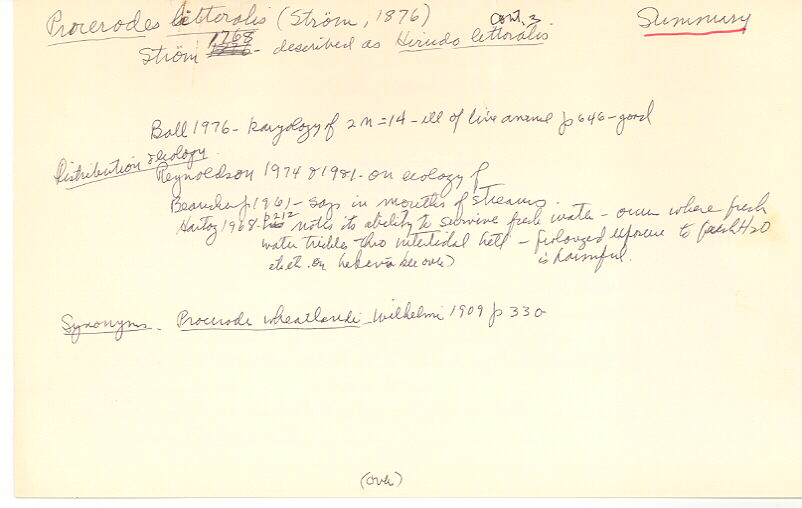 Procerodes littoralis (Ström, 1876) cont. 2. Summary
Ström 1768 - described as Hirudo littoralis
Ball 1976 - karyology of 2n=14 - ill of live animal p 646 - good
Distribution & ecology.
Reynoldson 1974 & 1981 - on ecology of
Beauchamp 1961 - says in mouths of streams.
Hartog 1968 - p 212 notes its ability to survive fresh water - occurs where fresh
water trickles thro intertidal belt - prolonged exposure to fresh H2O
is harmful.
etc etc. on see over)
Synonyms. Procerode wheatlandi - Wilhelmi 1909 p 330
(over)